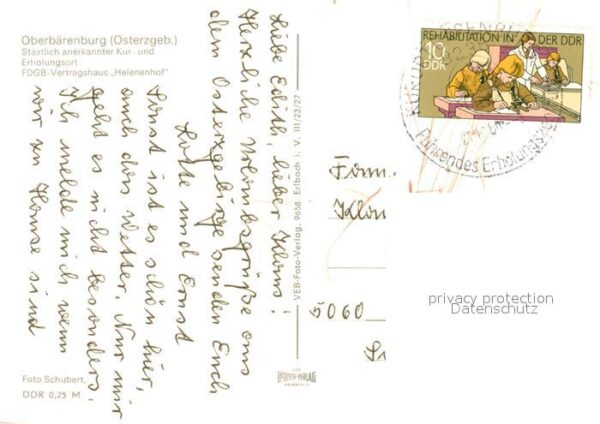 Oberbärenburg (Osterzgeb.)
Staatlich anerkannter Kur- und
Erholungsort
FDGB-Vertragshaus „Helenenhof"
Liebe Edith, lieber Klaus!
Herzliche Urlaubsgrüße aus
dem Osterzgebirge senden Euch
Lotte und Ernst
Sonst ist es schön hier,
auch das Wetter. Nur mir
geht es nicht besonders.
Ich melde mich wenn
wir zu Hause sind
Foto Schubert,
DDR 0,25 M
VEB-Foto-Verlag, 9658 Erlbach i. V. III/23/27
FOTO-VERLAG
ERLBACH
REHABILITATION IN DER DDR
10
DDR
Führendes Erholungs
Fam.
Klau
5060
privacy protection
Datenschutz